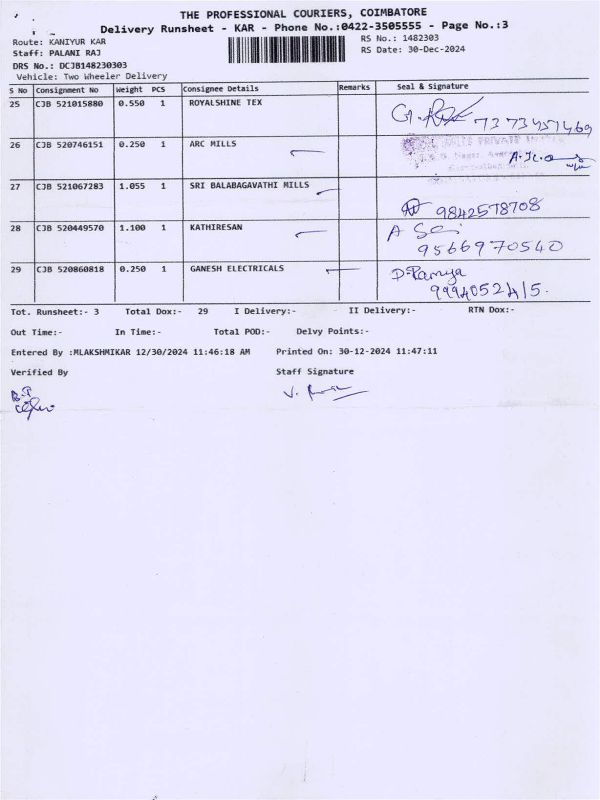 THE PROFESSIONAL COURIERS, COIMBATORE
Delivery Runsheet - KAR - Phone No.:0422-3505555 - Page No.:3
Route: KANIYUR KAR
RS No.: 1482303
Staff: PALANI RAJ
RS Date: 30-Dec-2024
DRS No.: DCJB148230303
Vehicle: Two Wheeler Delivery
S No Consignment No Weight PCS Consignee Details Remarks Seal & Signature
25 CJB 521015880 0.550 1 ROYALSHINE TEX
7373451469
26 CJB 520746151 0.250 1 ARC MILLS
27 CJB 521067283 1.055 1 SRI BALABAGAVATHI MILLS
9842578708
28 CJB 520449570 1.100 1 KATHIRESAN
9566970540
29 CJB 520860818 0.250 1 GANESH ELECTRICALS D.Ramya
Tot. Runsheet:- 3 Total Dox:- 29 I Delivery:- II Delivery:- RTN Dox:-
Out Time:- In Time:- Total POD:- Delvy Points:-
Entered By :MLAKSHMIKAR 12/30/2024 11:46:18 AM Printed On: 30-12-2024 11:47:11
Verified By Staff Signature